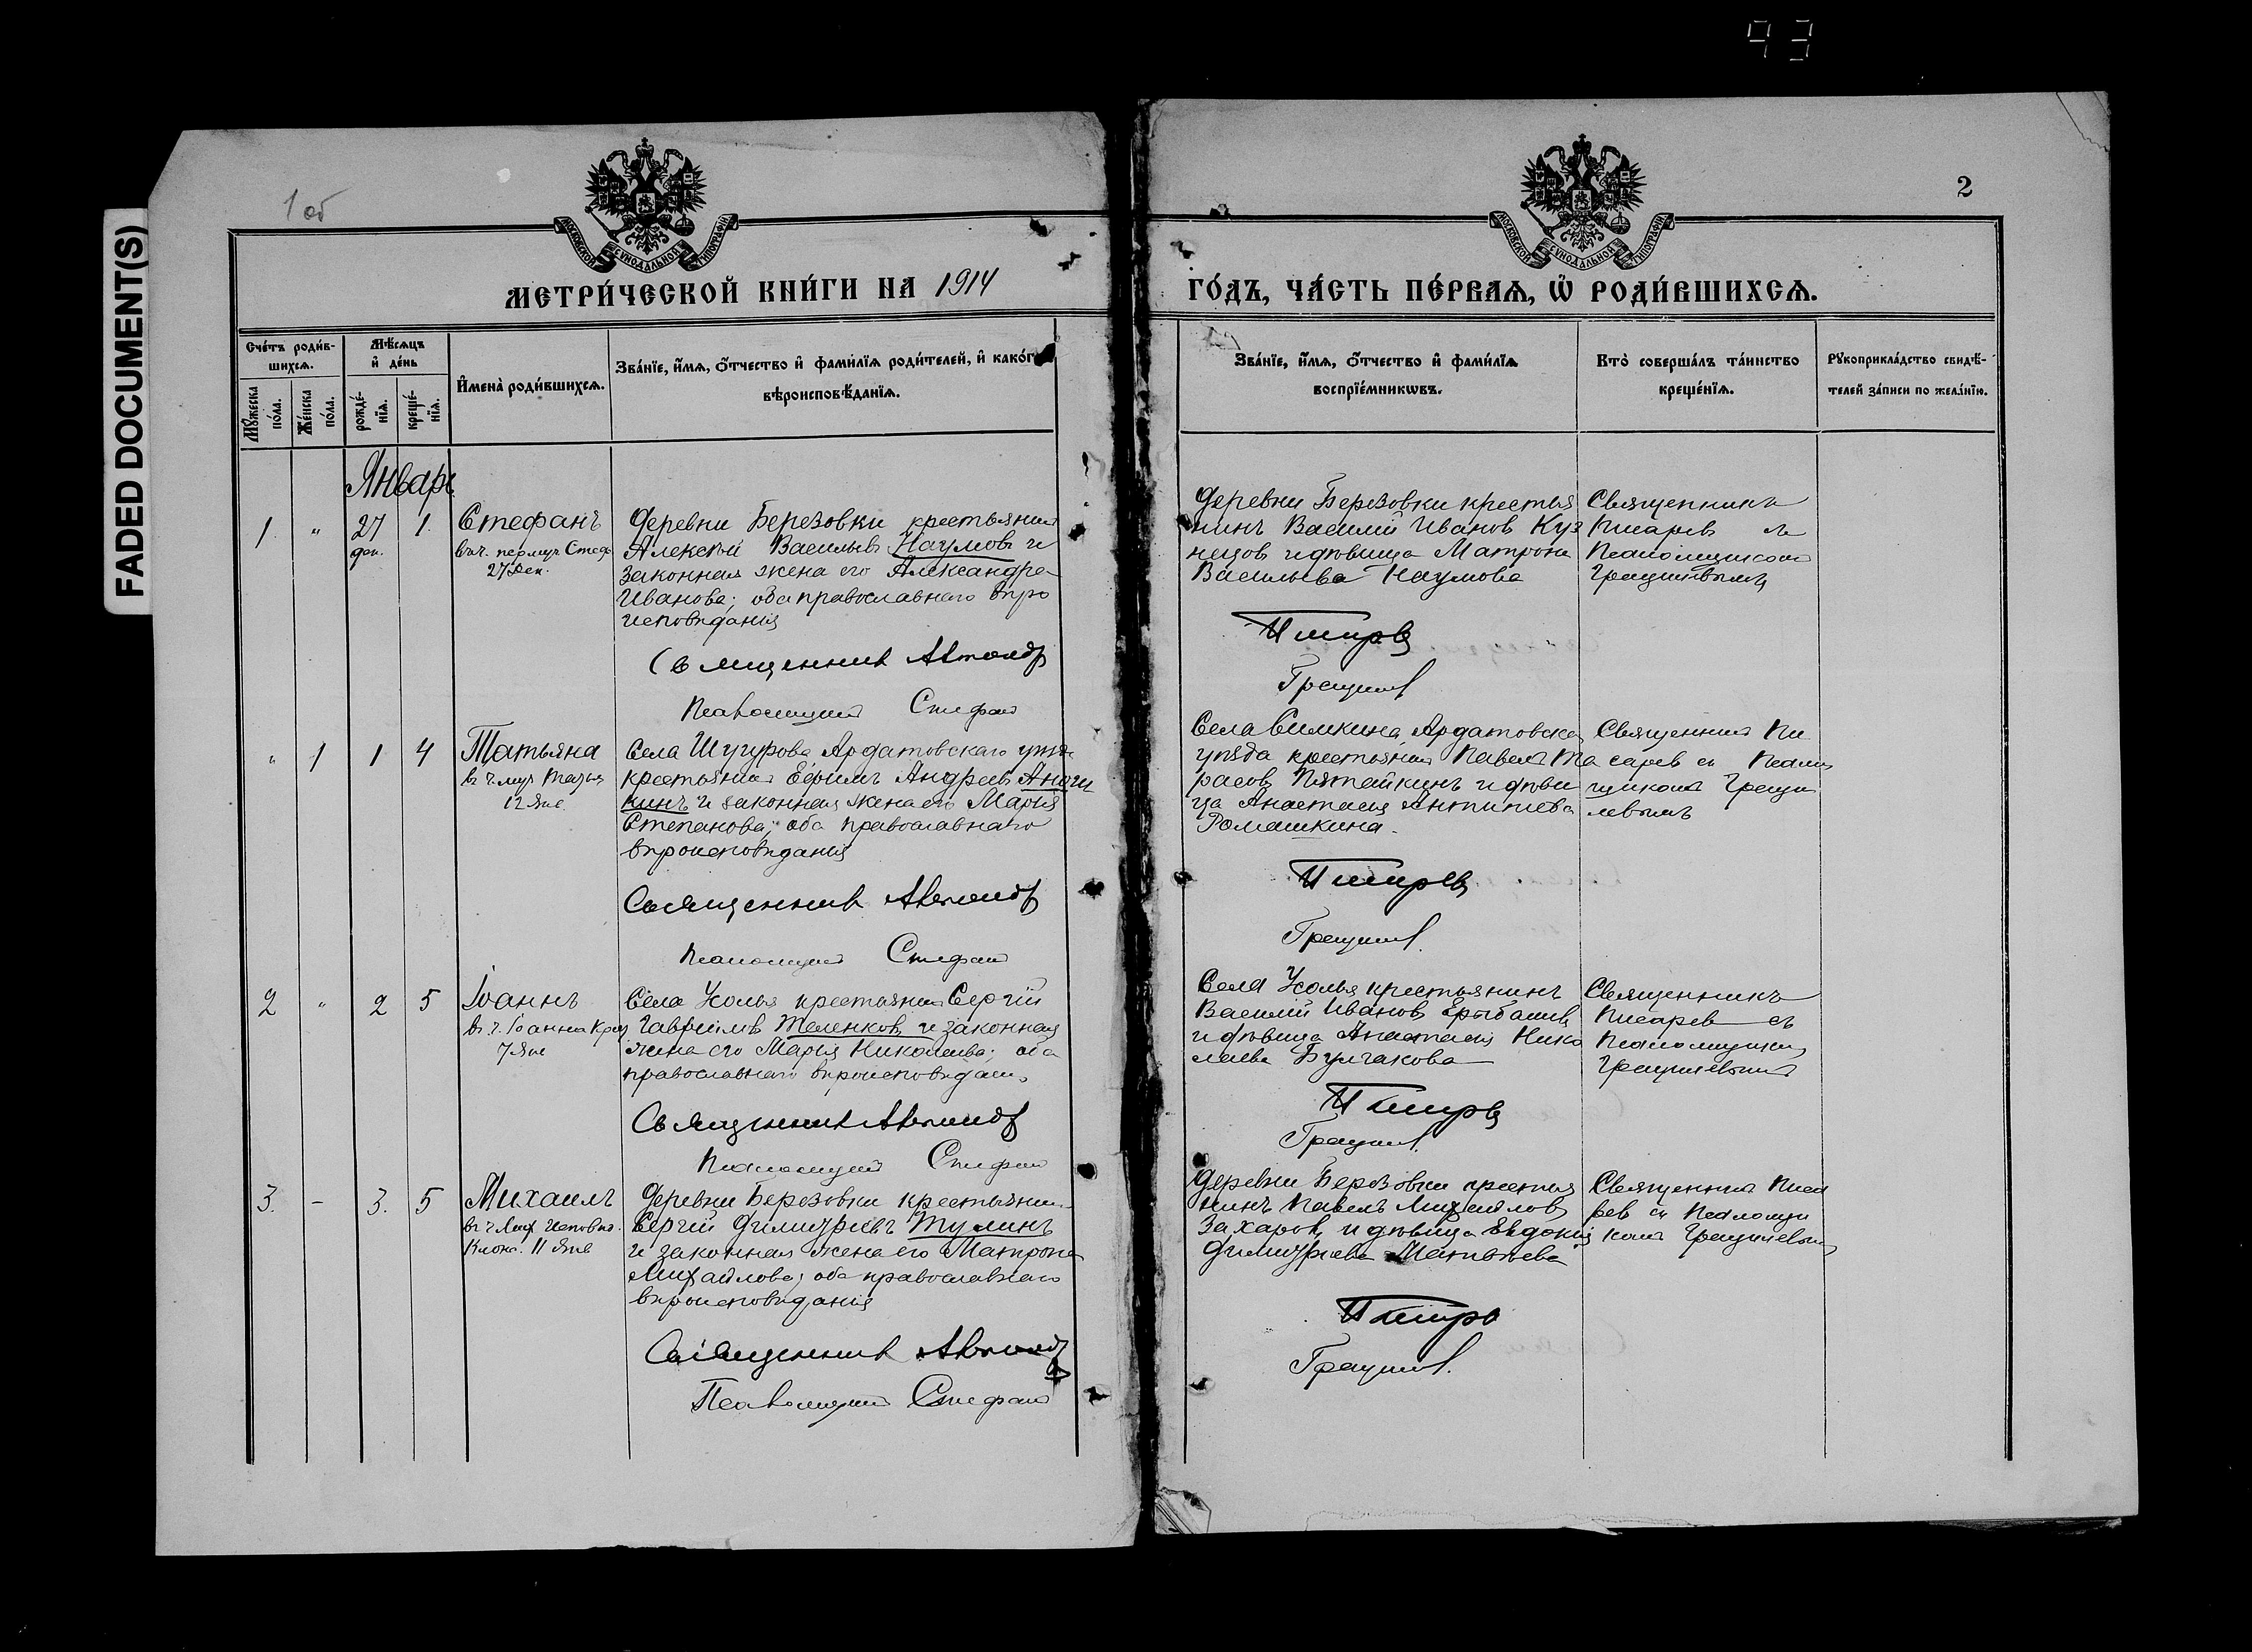 93
FADED DOCUMENT(S)
1 об
2
МОСКОВСКОЙ СѴНОДАЛЬНОЙ ТИПОГРАФІИ
МОСКОВСКОЙ СѴНОДАЛЬНОЙ ТИПОГРАФІИ
МЕТРИ́ЧЕСКОЙ КНИ́ГИ НА 1914
ГО́ДЪ, ЧА́СТЬ ПЕ́РВАѦ, Ѡ҆ РОДИ́ВШИХСѦ.
Сче́тъ роди́в-
шихсѧ.
Мꙋ́жеска
по́ла.
Же́нска
по́ла.
Мѣ́сѧцъ
и҆ де́нь
рожде́-
нїѧ.
креще́-
нїѧ.
И҆мена̀ роди́вшихсѧ.
Зва́нїе, и҆́мѧ, ѻ҆́тчество и҆ фами́лїѧ роди́телей, и҆ како́гѡ
вѣроисповѣ́данїѧ.
Зва́нїе, и҆́мѧ, ѻ҆́тчество и҆ фами́лїѧ
воспрїе́мникѡвъ.
Кто̀ соверша́лъ та́инство
креще́нїѧ.
Рꙋкоприкла́дство свидѣ́-
телей за́писи по жела́нїю.
Январь
1. " 27 1. Стефанъ
дек.
27 Дек.
Деревни Березовки крестьянинъ
Алексѣй Васильевъ Наумовъ и
законная жена его Александра
Иванова; оба православнаго вѣро
исповѣданія
Священник
Псаломщик Стефан
Деревни Березовки крестья
нинъ Василий Иванов Куз
нецов и дѣвица Матрона
Васильева Наумова
Священникъ
Писарев с
Псаломщиком
" 1 1 4 Татьяна
12 Янв.
Села Шугурова Ардатовскаго уѣзда
крестьянин Ефимъ Андреев Аноч
кинъ и законная жена его Марія
Степанова; оба православнаго
вѣроисповѣданія
Священник
Псаломщик Стефан
Села Симкина, Ардатовскаго
уѣзда крестьянин Павел Та
расов Пятайкинъ и дѣви
ца Анастасія Антипиева
Ромашкина.
Священник Пи
сарев с Псалом
щиком
2 " 2 5 Іоаннъ
в ч. Іоанна Крест.
7 Янв
Села Усолья крестьянин Сергій
Гавриилов Теленков и законная
жена его Марія Николаева; оба
православнаго вѣроисповѣдан.
Священник
Псаломщик Стефан
Села Усолья крестьянинъ
Василий Иванов
и дѣвица Анастасія Нико
лаева Булгакова
Священникъ
Писарев съ
Псаломщиком
3. – 3. 5 Михаилъ
11 Янв
Деревни Березовки крестьянин
Сергій Димитріевъ Тулинъ
и законная жена его Матрона
Михайлова; оба православнаго
вѣроисповѣданія
Священник
Псаломщик Стефан
Деревни Березовки крестья
нинъ Павелъ Михайлов
Захаров и дѣвица Евдокія
Димитріева Матвѣева
Священник Писа
рев с Псаломщи
ком